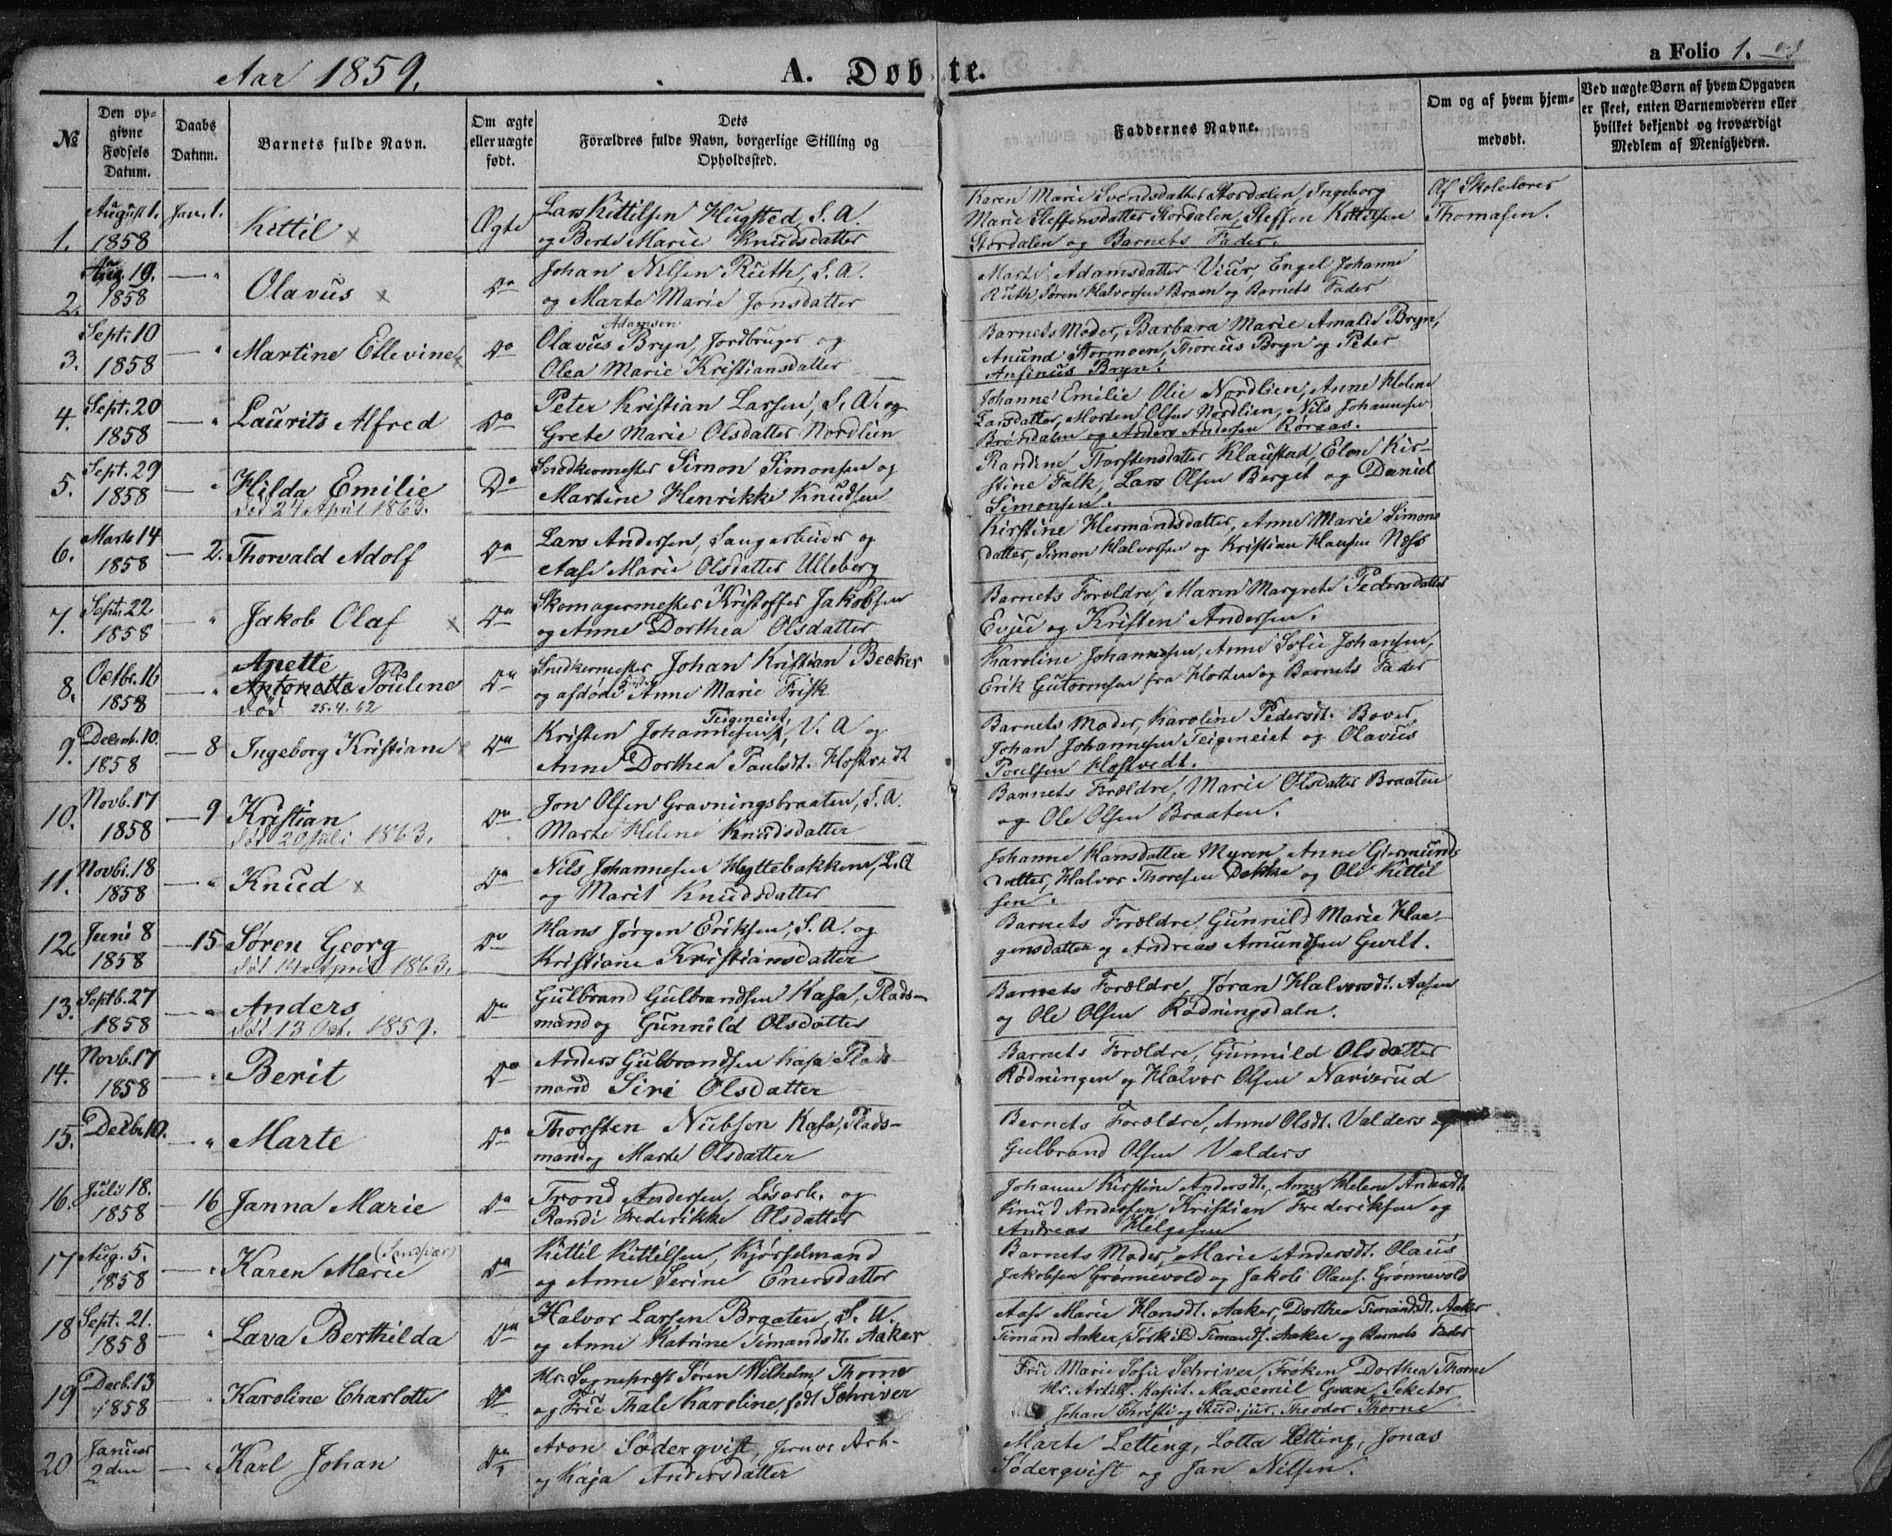 Aar 1859.
A. Døbte.
a Folio 1.
№
Den opgivne Fødsels Datum.
Daabs Datum.
Barnets fulde Navn.
Om ægte eller uægte født.
Dets Forældres fulde Navn, borgerlige Stilling og Opholdssted.
Faddernes Navne.
Om og af hvem hjemmedøbt.
Ved uægte Børn af hvem Opgaven er skeet, enten Barnemoderen eller hvilket bekjendt og troværdigt Medlem af Menigheden.
1. August 1. 1858 Jan. 1. Kittil Ægte
Lars Kittilsen Hugsted, S. A.
og Berte Marie Knudsdatter
Karen Marie Svendsdatter Stordalen, Ingeborg
Marie Steffensdatter Stordalen, Steffen Kittilsen
Stordalen og Barnets Fader.
Af Skolelærer
Thomasen.
2. Aug. 19. 1858 — " Olavus Do
Johan Nilsen Ruth, S. A.
og Marte Marie Jonsdatter
Marte Adamsdatter Viur, Engel Johanne
Ruth, Søren Halvorsen Braen og Barnets Fader
3. Sept. 10 1858 — " Martine Ellevine Do
Adamsen
Olavus Bryn, Jordbruger og
Olea Marie Kristiansdatter
Barnets Moder, Barbara Marie Amalie Bryn,
Anund Stormoen, Thoreus Bryn og Peter
Ansinus Bryn.
4. Sept. 20 1858 — " Laurits Alfred Do
Peter Kristian Larsen, S. A. og
Grete Marie Olsdatter Nordlien
Johanne Emilie Olie Nordlien, Anne Helene
Larsdatter, Morten Olsen Nordlien, Nils Johannesen
Brøndalen og Anders Andersen Roraas.
5. Sept. 29 1858 — " Hilda Emilie Do
død 27 April 1863.
Snedkermester Simon Simonsen og
Martine Henrikke Knudsen
Randine Torstensdatter Klaustad, Elen Kir-
stine Falk, Lars Olsen Berget og Daniel
Simonsen.
6. Marts 14 1858 — 2. Thorvald Adolf Do
Lars Andersen, Saugarbeider og
Aase Marie Olsdatter Ulleberg
Kirstine Hermandsdatter, Anne Marie Simons
datter, Simon Halvorsen og Kristian Hansen Næss
7. Sept. 22 1858 — " Jakob Olaf Do
Skomagermester Kristoffer Jakobsen
og Anne Dorthea Olsdatter
Barnets Forældre, Maren Margrete Pedersdatter
Evjue og Kristen Andersen.
8. Octbr. 16 1858 — " Anette
Antonette Pouline Do
død 25.4.62
Snedkermester Johan Kristian Becker
og afdøde Anne Marie Frisk
Karoline Johannesen, Anne Sofie Johansen,
Erik Gutormsen fra Horten og Barnets Fader
9. Decemb. 10. 1858 — 8 Ingeborg Kristiane Do
Teigeneiet
Kristen Johannesen, V. A og
Anne Dorthea Paulsdt. Hostvedt
Barnets Moder, Karoline Pedersdt. Bover,
Johan Johannesen Teigeneiet og Olavus
Povelsen Hostvedt.
10. Novb. 17 1858 — 9 Kristian Do
død 20 Juli 1863.
Jon Olsen Gravningsbraaten, S. A.
Marte Helene Knudsdatter
Barnets Forældre, Marie Olsdatter Braaten
og Ole Olsen Braaten.
11. Novbr. 18 1858 — " Knud Do
Nils Johannesen Hyttebakken, S. A
og Marit Knudsdatter
Johanne Hansdatter Myren Anne Gurmunds
datter, Halvor Thoresen Dokka og Ole Kittil
sen.
12. Juni 8 1858 — 15 Søren Georg Do
død 14 April 1863.
Hans Jørgen Eriksen, S. A. og
Kristiane Kristiansdatter
Barnets Forældre, Gunnild Marie Haa-
gensdatter og Andreas Amundsen Gvelt.
13. Septb. 27 1858 — " Anders Do
død 13 Oct. 1859.
Gulbrand Gulbrandsen Kasa, Plads-
mand og Gunnild Olsdatter
Barnets Forældre, Jøran Halvorsdt. Aasen
og Ole Olsen Rødningsdaln.
14. Novb. 17 1858 — " Berit Do
Anders Gulbrandsen Kasa Plads-
mand Siri Olsdatter
Barnets Forældre, Gunnild Olsdatter
Rødningen og Halvor Olsen Navverud
15. Decbr. 10. — " Marte Do
Thorsten Nubsen Kasa, Plads-
mand og Marte Olsdatter
Barnets Forældre, Anne Olsdt. Valders og
Gulbrand Olsen Valders
16. Juli 18. 1858 — 16 Janna Marie Do
Trond Andersen, Løsarb. og
Randi Frederikke Olsdatter
Johanne Kirstine Andersdt., Anne Helene Andersdt.
Knud Andersen, Kristian Frederiksen og
Andreas Helgesen
17 Aug. 5. 1858 — " Karen Marie Do
Kittil Kittilsen, Kjørselmand
og Anne Serine Enersdatter
Barnets Moder, Marie Andersdt. Olaus
Jakobsen Grønnevold og Jakob Olaus. Grønnevold
18 Sept. 21. 1858 — " Lava Berthilda Do
Halvor Larsen Braaten, S. A.
og Anne Katrine Timandsdt. Aaker
Aase Marie Hansdt. Aaker, Dorthea Timandsdt. Aaker
Timand Aaker, Torkild Timands. Aaker og Barnets Fader
19 Decb. 13 1858 — " Karoline Charlotte Do
Hr. Sogneprest Søren Wilhelm Thorne
og Frue Thale Karoline, født Schriver
Frue Marie Sofie Schriver, Frøken Dorthea Thorne
Hr. Artill. Kapit. Maxemil Gran, Seketær
Johan Christi og Stud. jur. Theodor Thorne
20 Januar 2 den — " Karl Johan Do
Aron Söderqvist, Jernv. Arb.
og Kaja Andersdatter
Marte Letting, Lotta Letting, Jonas
Söderqvist og Jan Nilsen.